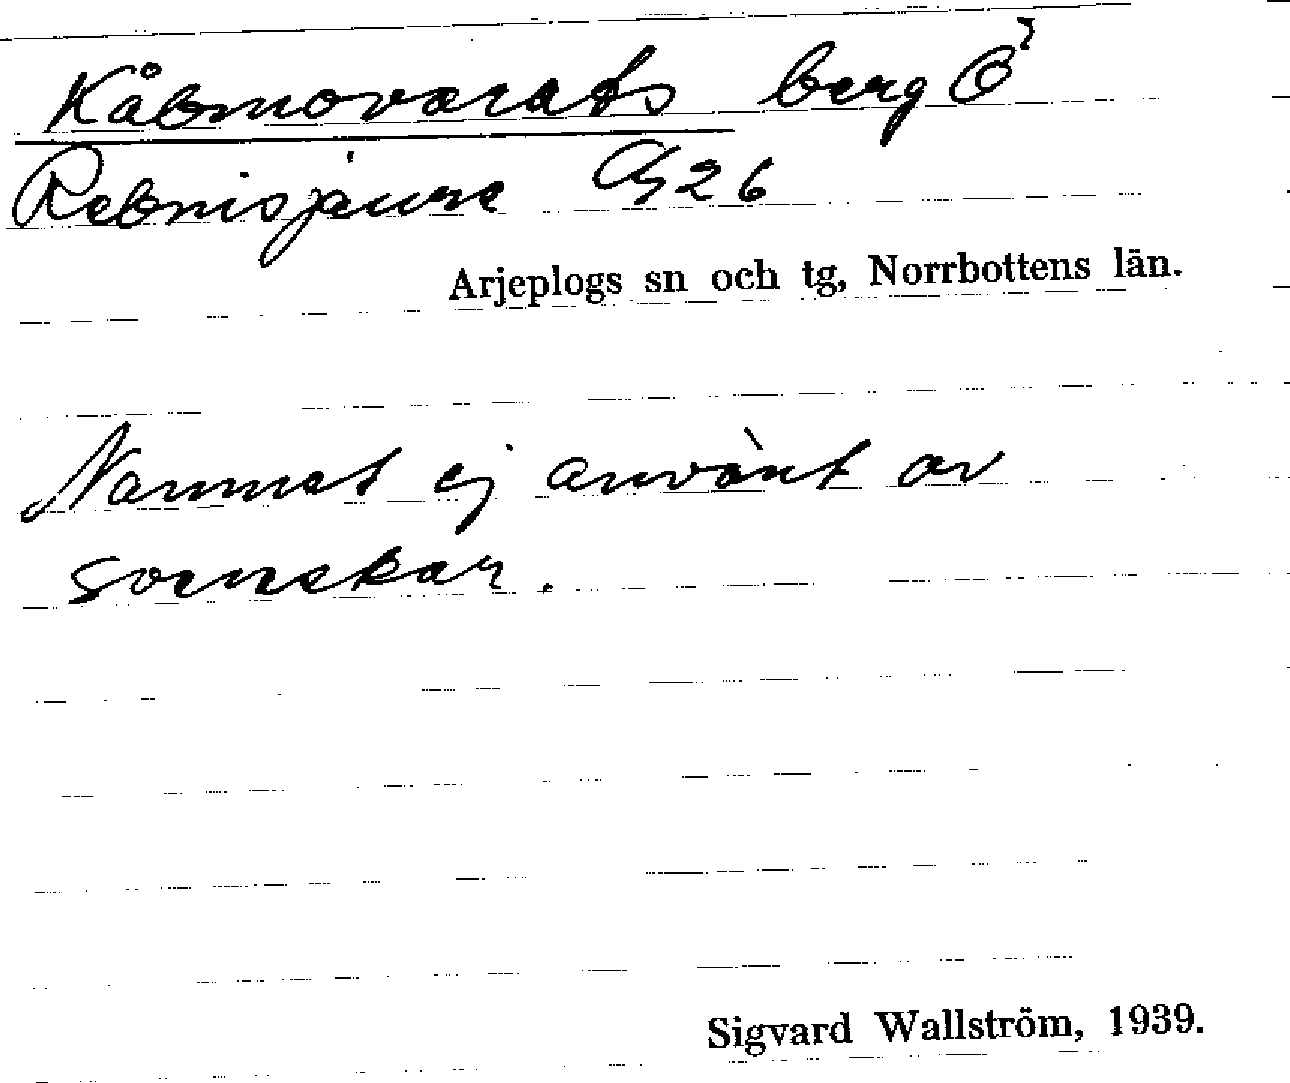 Kåbmovaratj berg Ö
Rebnisjaure Cg 26
Arjeplogs sn och tg, Norrbottens län.
Namnet ej använt av
svenskar.
Sigvard Wallström, 1939.